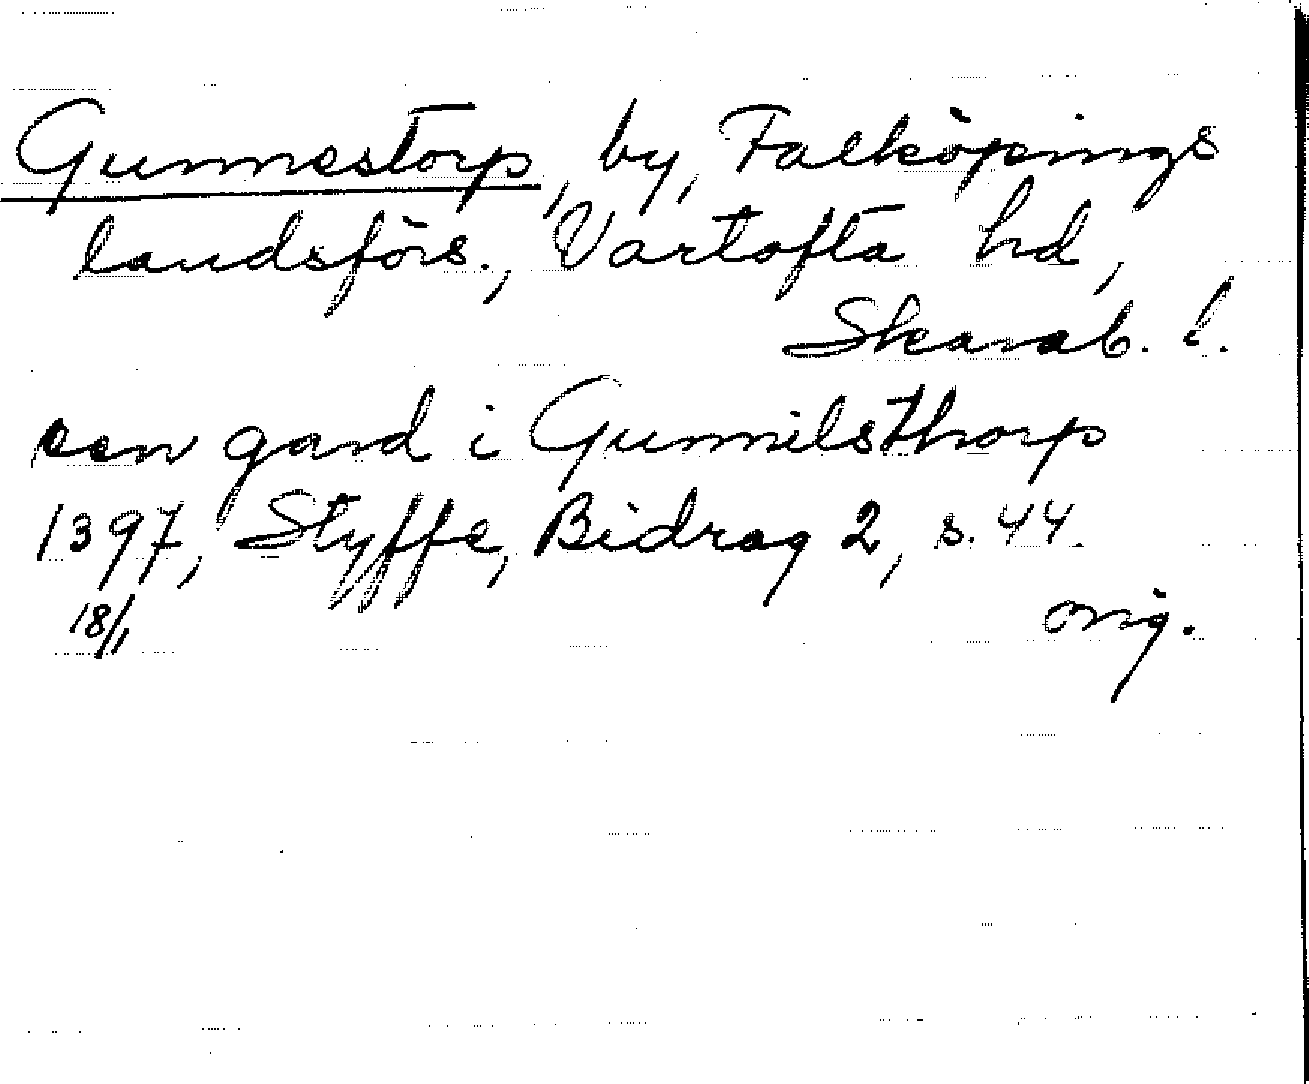 Gunnestorp, by, Falköpings
landsförs., Vartofta hd,
Skarab. l.
een gard i Gunnilsthorp
1397, Styffe, Bidrag 2, s. 44.
18/1 orig.